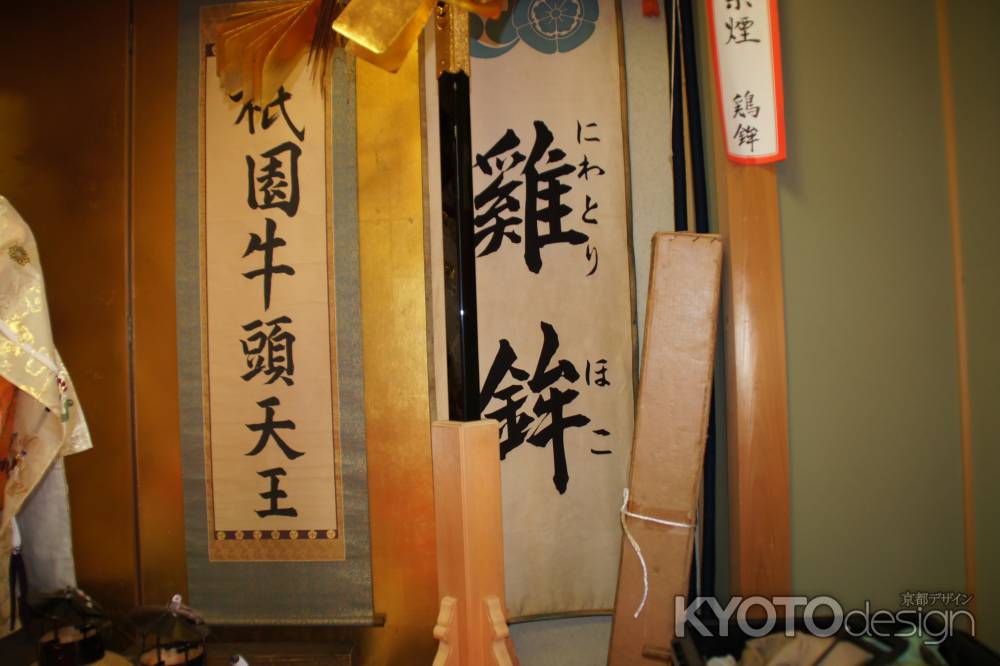 祇園牛頭天王
雞鉾
にわとり
ほこ
禁煙 鶏鉾
京都デザイン
KYOTOdesign